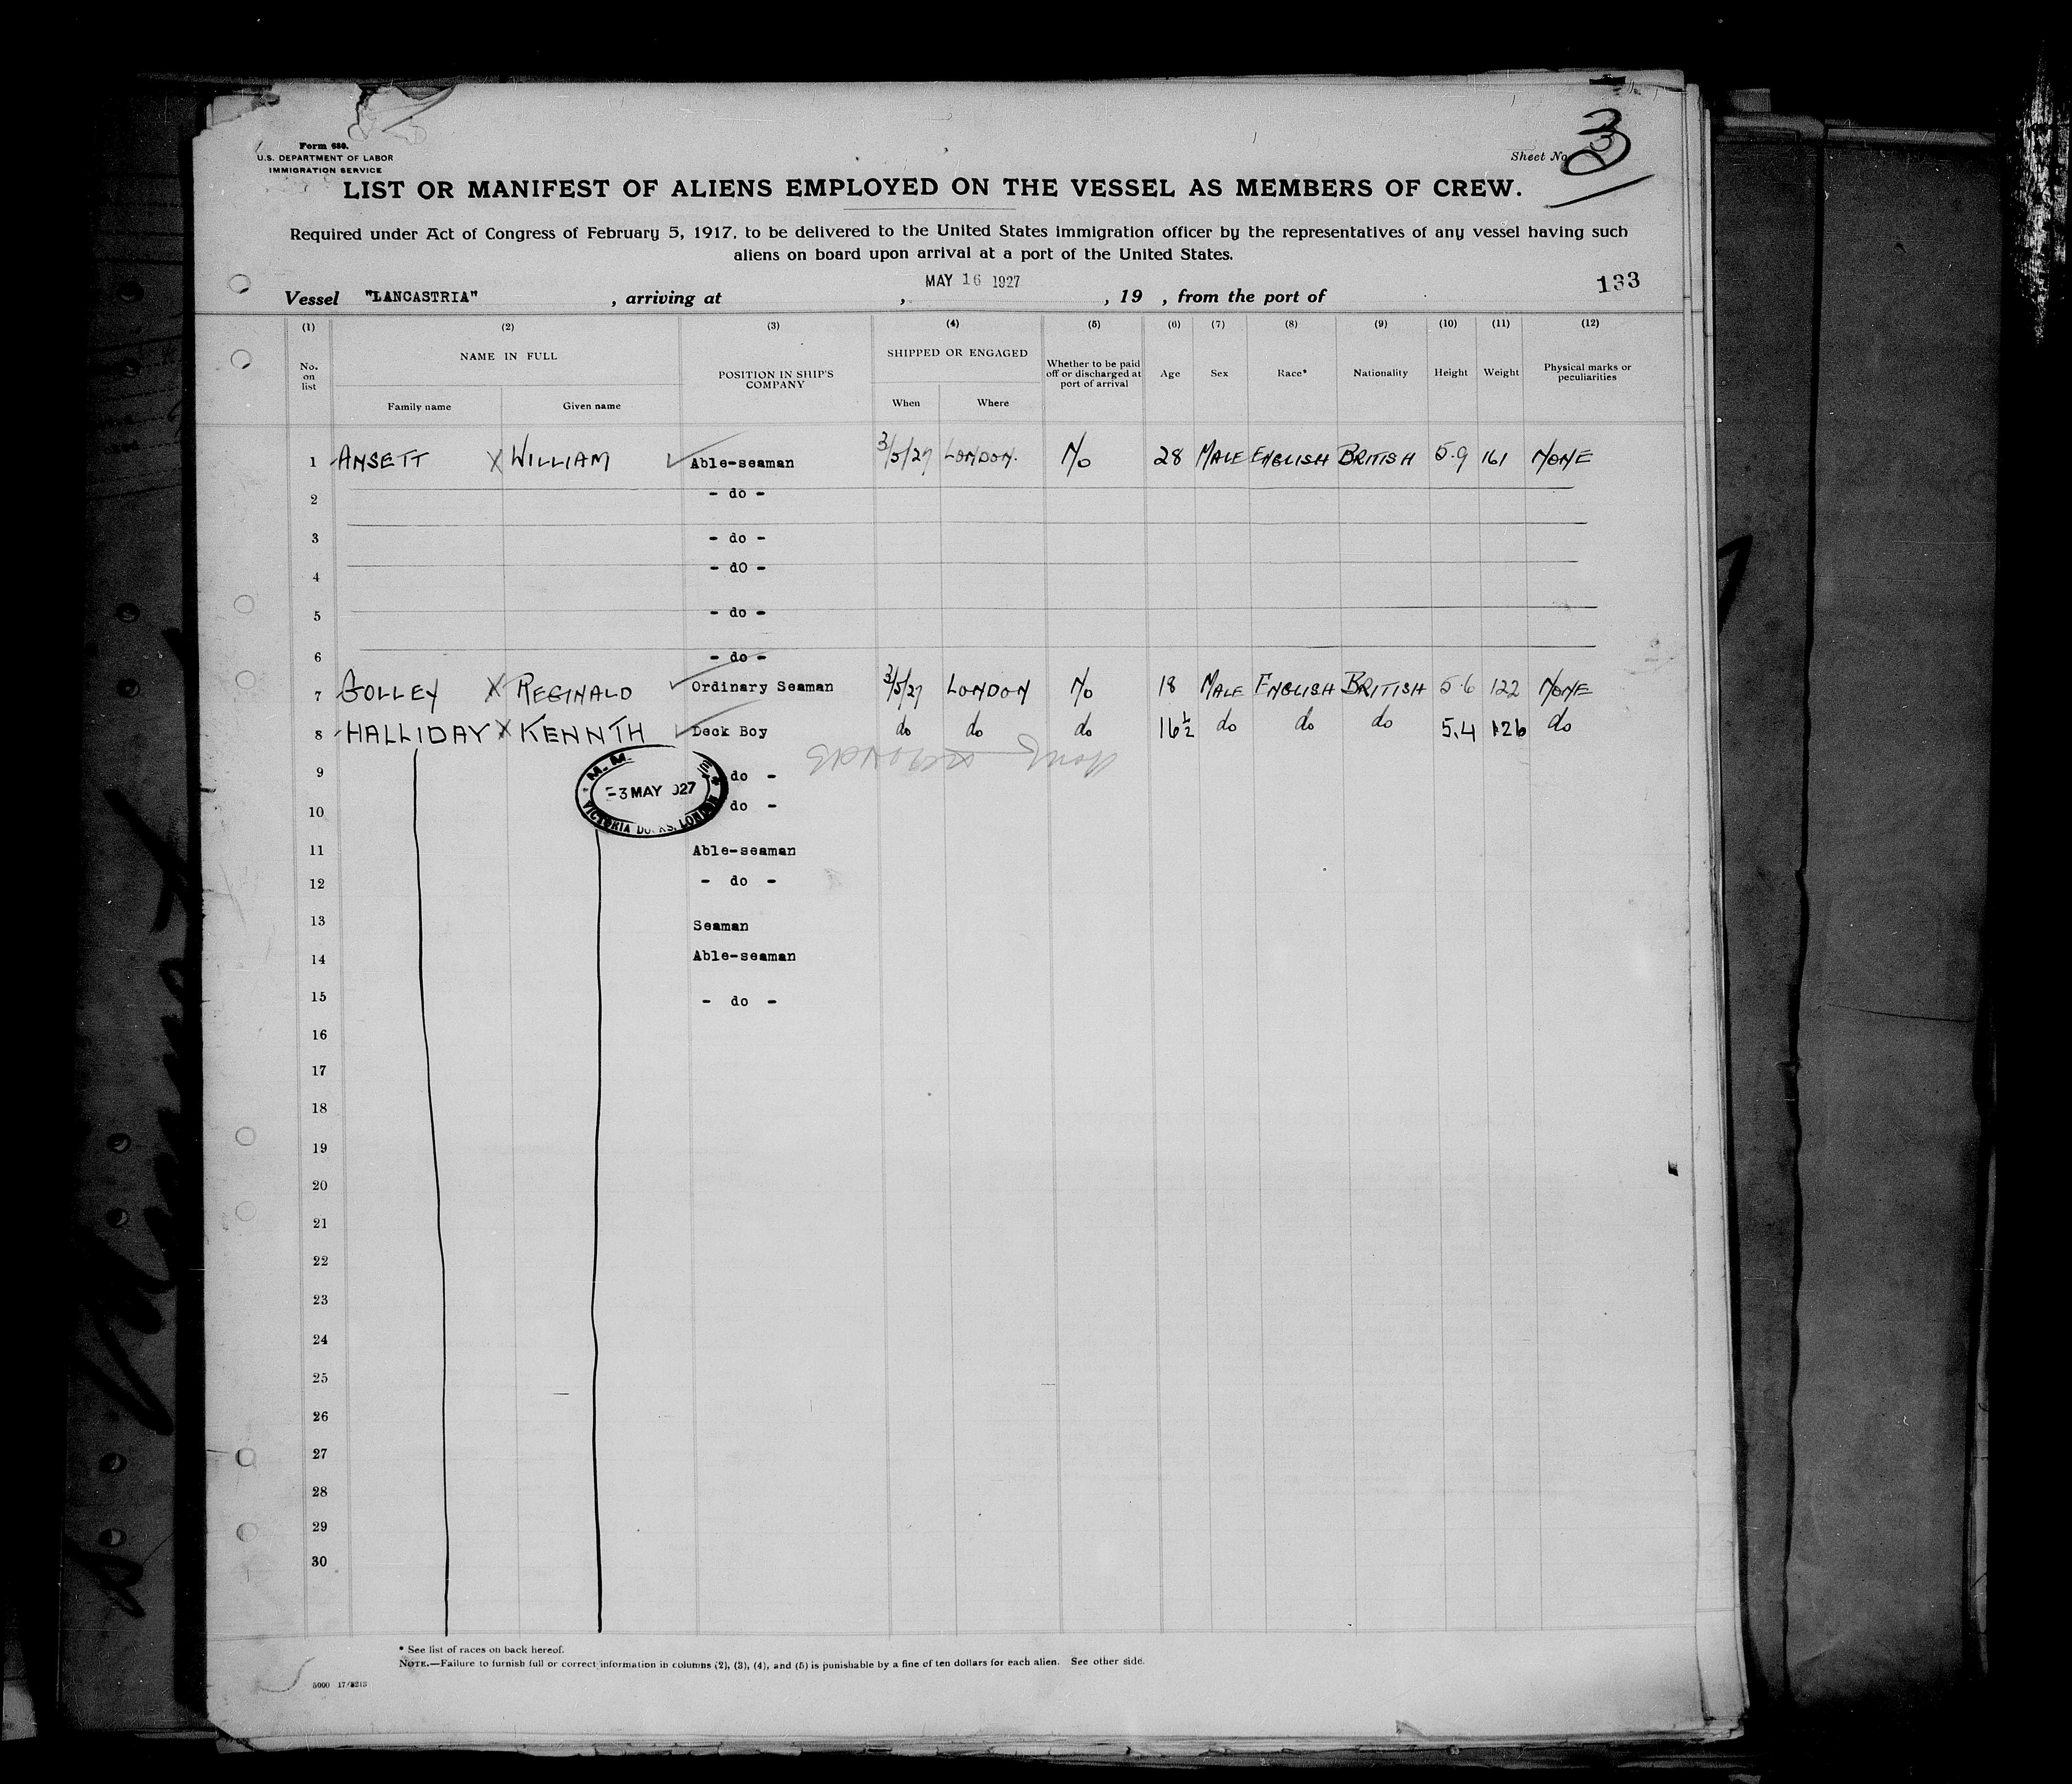 Form 680.
U.S. DEPARTMENT OF LABOR
IMMIGRATION SERVICE
Sheet No. 3
LIST OR MANIFEST OF ALIENS EMPLOYED ON THE VESSEL AS MEMBERS OF CREW.
Required under Act of Congress of February 5, 1917, to be delivered to the United States immigration officer by the representatives of any vessel having such
aliens on board upon arrival at a port of the United States.
MAY 16 1927
133
Vessel "LANCASTRIA" , arriving at , , 19 , from the port of
(1) (2) (3) (4) (5) (6) (7) (8) (9) (10) (11) (12)
No. on list
NAME IN FULL
Family name Given name
POSITION IN SHIP'S COMPANY
SHIPPED OR ENGAGED
When Where
Whether to be paid off or discharged at port of arrival
Age Sex Race* Nationality Height Weight
Physical marks or peculiarities
1 ANSETT X WILLIAM Able-seaman 3/5/27 LONDON. No 28 MALE ENGLISH BRITISH 5.9 161 NONE
2 - do -
3 - do -
4 - dO -
5 - do -
6 - do -
7 GOLLEY X REGINALD Ordinary Seaman 3/5/27 LONDON No 18 MALE ENGLISH BRITISH 5.6 122 NONE
8 HALLIDAY X KENNTH Deck Boy do do do 16½ do do do 5.4 126 do
9 do -
10 do -
M.M.
-3 MAY 927
VICTORIA DOCKS, LONDON
11 Able-seaman
12 - do -
13 Seaman
14 Able-seaman
15 - do -
16
17
18
19
20
21
22
23
24
25
26
27
28
29
30
* See list of races on back hereof.
NOTE.—Failure to furnish full or correct information in columns (2), (3), (4), and (5) is punishable by a fine of ten dollars for each alien. See other side.